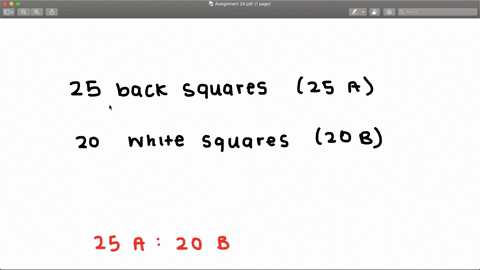 Assignment 24.pdf (1 page)
Search
25 back squares (25 A)
20 white squares (20 B)
25 A : 20 B